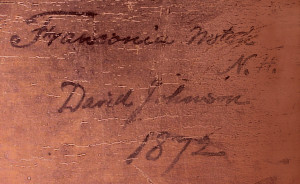 Franconia Notch
N.H.
David Johnson
1872